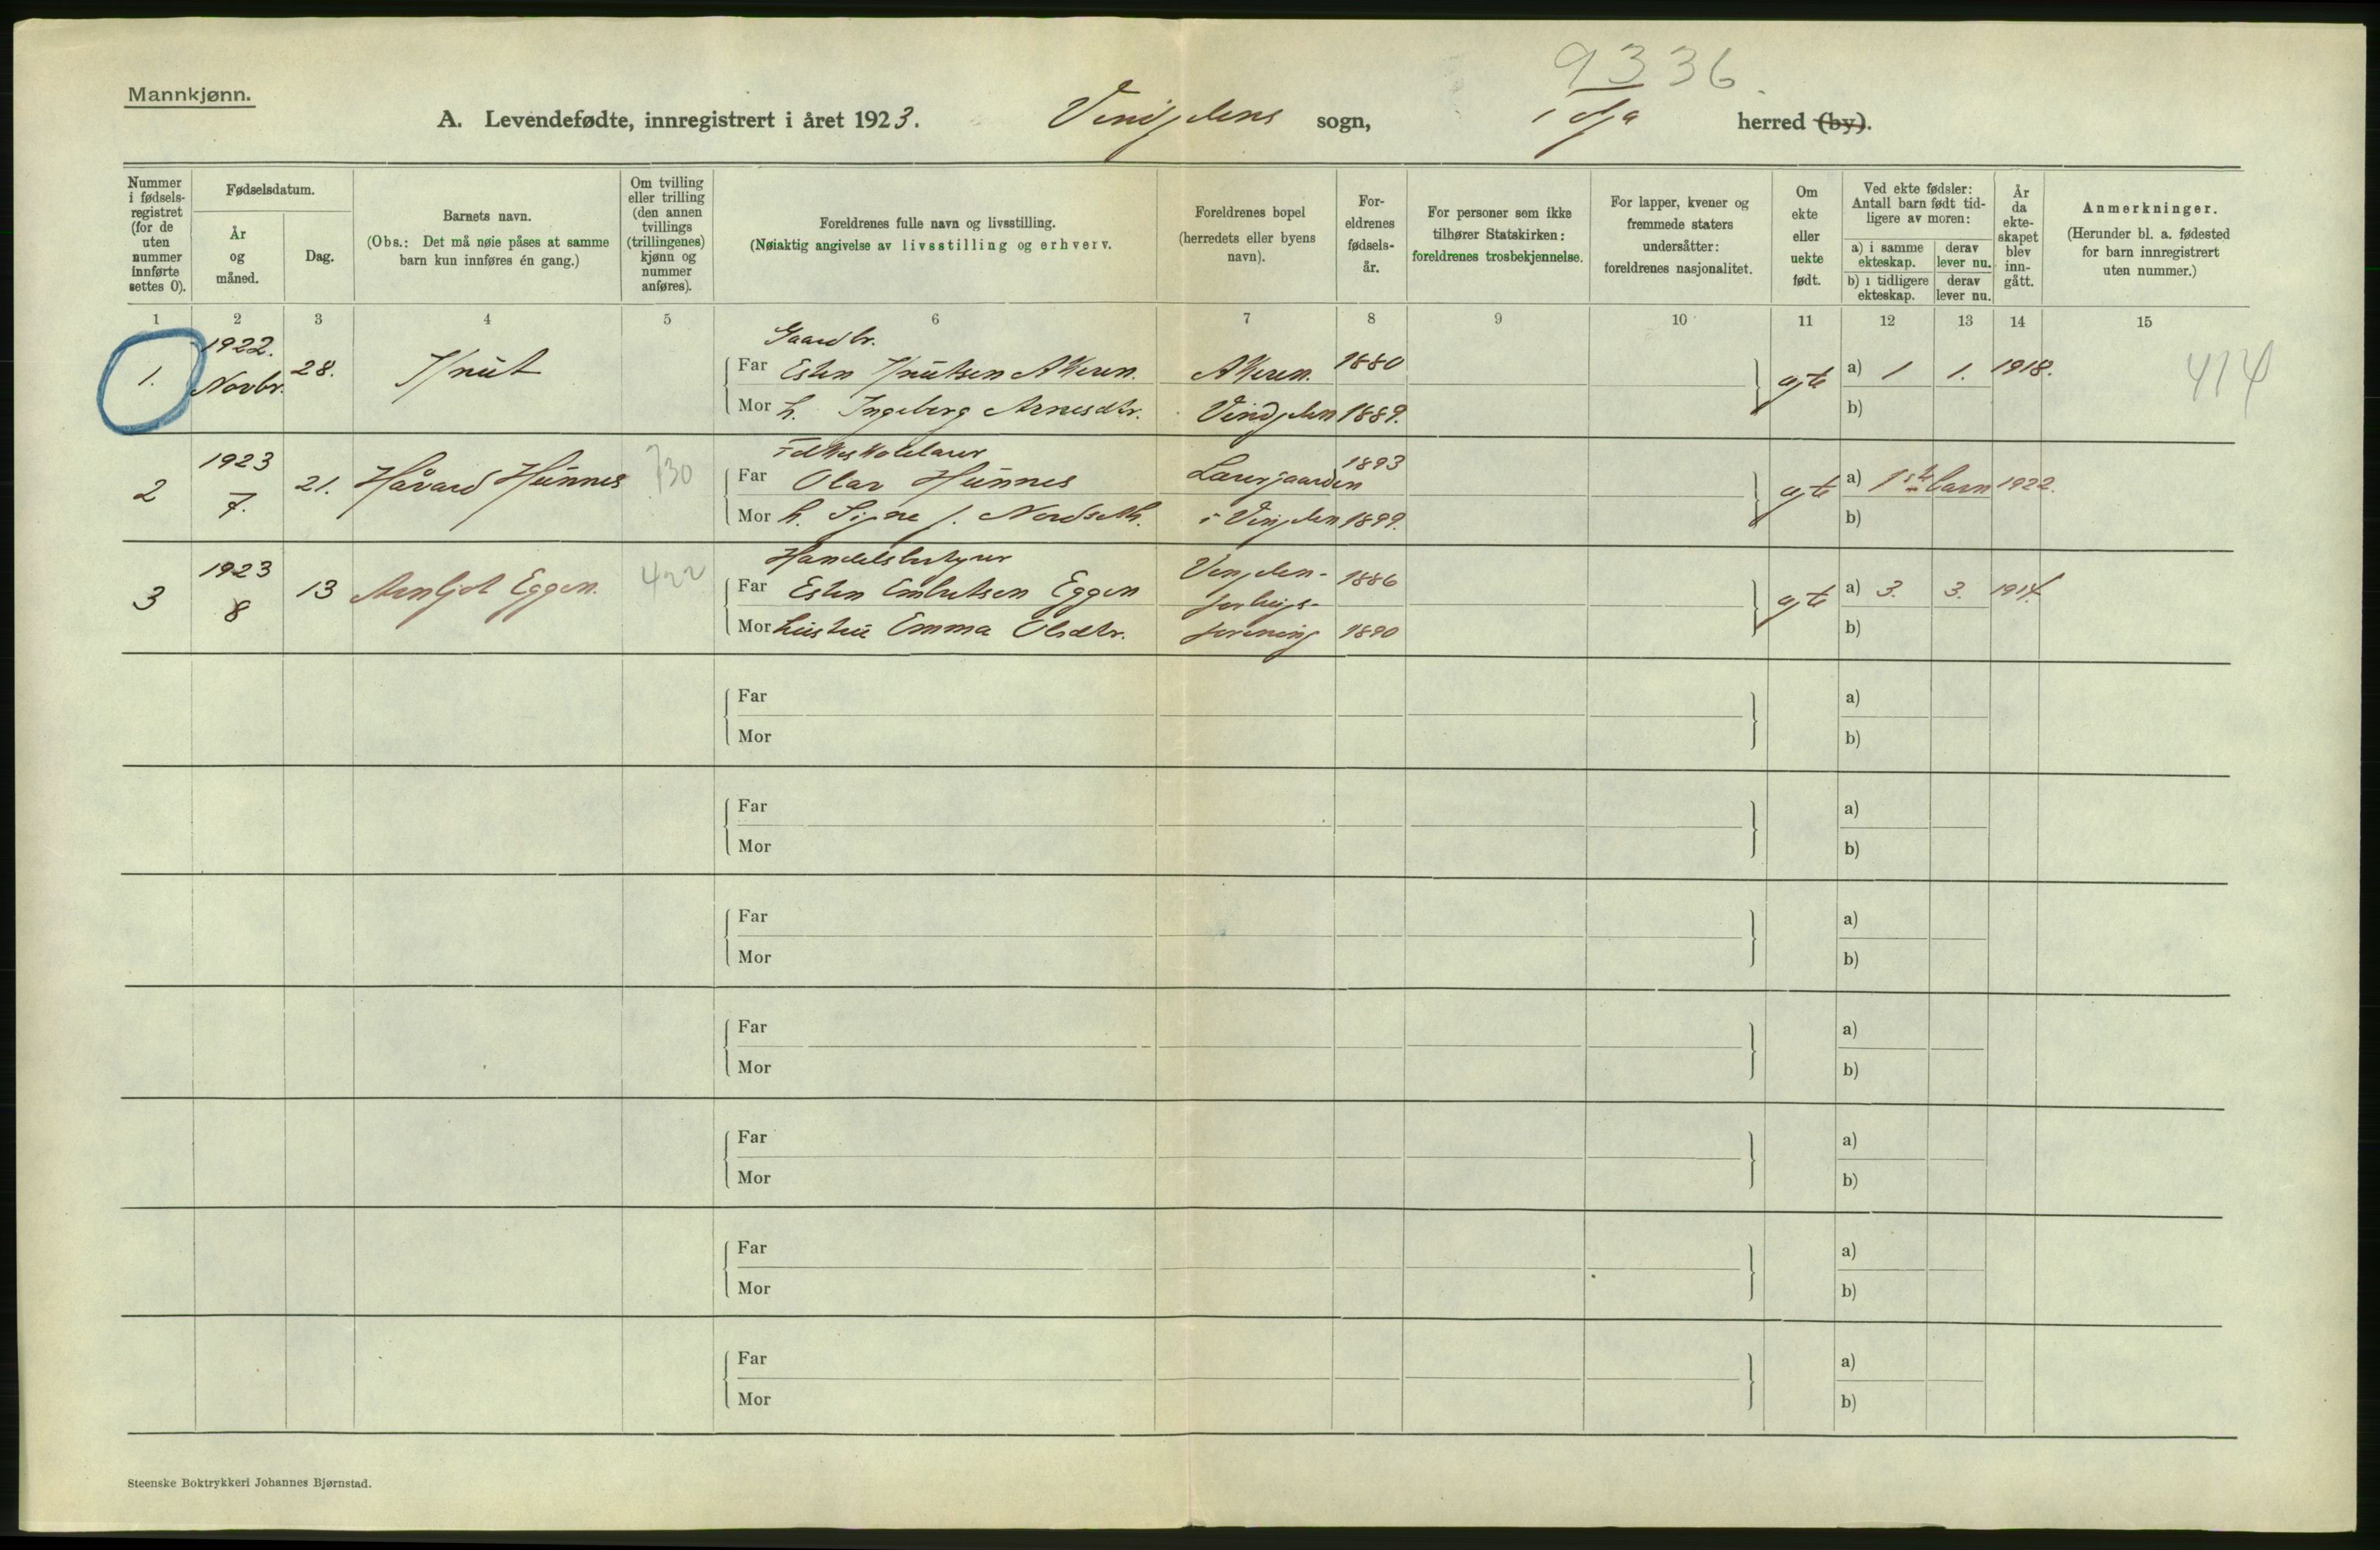 9336
Mannkjønn.
A. Levendefødte, innregistrert i året 1923. Vingelens sogn, herred (by).
Nummer i fødsels-registret (for de uten nummer innførte settes 0).
Fødselsdatum.
År og måned.
Dag.
Barnets navn.
(Obs.: Det må nøie påses at samme barn kun innføres én gang.)
Om tvilling eller trilling (den annen tvillings (trillingenes) kjønn og nummer anføres).
Foreldrenes fulle navn og livsstilling.
(Nøiaktig angivelse av livsstilling og erhverv.
Foreldrenes bopel (herredets eller byens navn).
For-eldrenes fødsels-år.
For personer som ikke tilhører Statskirken: foreldrenes trosbekjennelse.
For lapper, kvener og fremmede staters undersåtter: foreldrenes nasjonalitet.
Om ekte eller uekte født.
Ved ekte fødsler: Antall barn født tid-ligere av moren:
a) i samme ekteskap. derav lever nu.
b) i tidligere ekteskap. derav lever nu.
År da ekte-skapet blev inn-gått.
Anmerkninger.
(Herunder bl. a. fødested for barn innregistrert uten nummer.)
1 2 3 4 5 6 7 8 9 10 11 12 13 14 15
1922. Gaardbr.
1. Novbr. 28. Knut Far Esten Knutsen Akeren. Akeren. 1880 egte a) 1 1. 1918. 414
Mor h. Ingeborg Arnesdtr. Vingelen 1889. b)
1923 Folkeskolelærer 1893
2 7. 21. Håvard Hunnes 730 Far Olav Hunnes Lærergaarden egte a) 1ste barn 1922.
Mor h. Signe f. Nordseth. i Vingelen 1899. b)
1923 Handelsbestyrer Vingelen-
3 8 13 Arnljot Eggen. 422 Far Esten Embretsen Eggen forbrugs- 1886 egte a) 3. 3. 1914.
Mor hustru Emma Olsdtr. forening 1890 b)
Far a)
Mor b)
Far a)
Mor b)
Far a)
Mor b)
Far a)
Mor b)
Far a)
Mor b)
Far a)
Mor b)
Far a)
Mor b)
Steenske Boktrykkeri Johannes Bjørnstad.